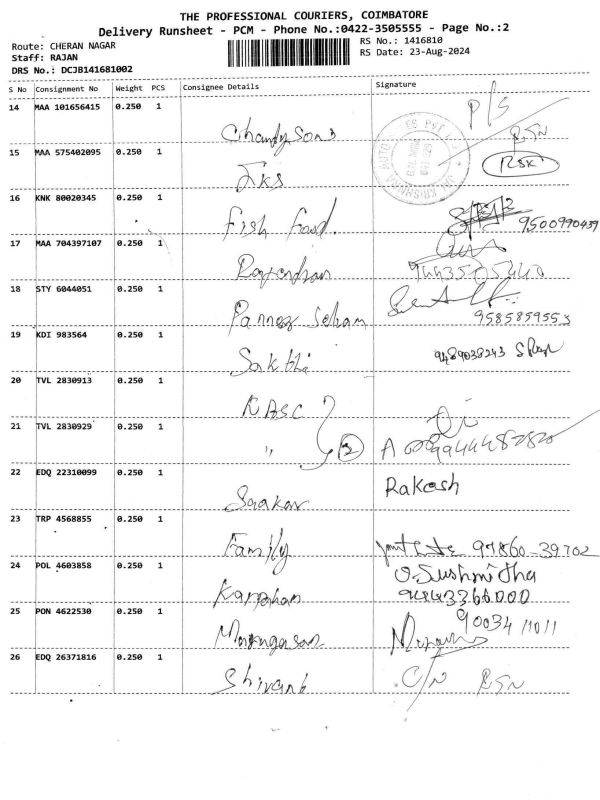 THE PROFESSIONAL COURIERS, COIMBATORE
Delivery Runsheet - PCM - Phone No.:0422-3505555 - Page No.:2
Route: CHERAN NAGAR
RS No.: 1416810
Staff: RAJAN
RS Date: 23-Aug-2024
DRS No.: DCJB141681002
S No Consignment No Weight PCS Consignee Details Signature
14 MAA 101656415 0.250 1 P/S
15 MAA 575402095 0.250 1 JKS RSK
16 KNK 80020345 0.250 1 Fish Food 9500990439
17 MAA 704397107 0.250 1 Rajendran
18 STY 6044051 0.250 1 9585859553
19 KDI 983564 0.250 1 Sakthi
20 TVL 2830913 0.250 1 KBSC
21 TVL 2830929 0.250 1 " 2
22 EDQ 22310099 0.250 1 Rakash
23 TRP 4568855 0.250 1 Family 97860-39702
24 POL 4603858 0.250 1 O.Sushmitha
9443366000
25 PON 4622530 0.250 1 Murugasan 90034 11011
26 EDQ 26371816 0.250 1 C/N